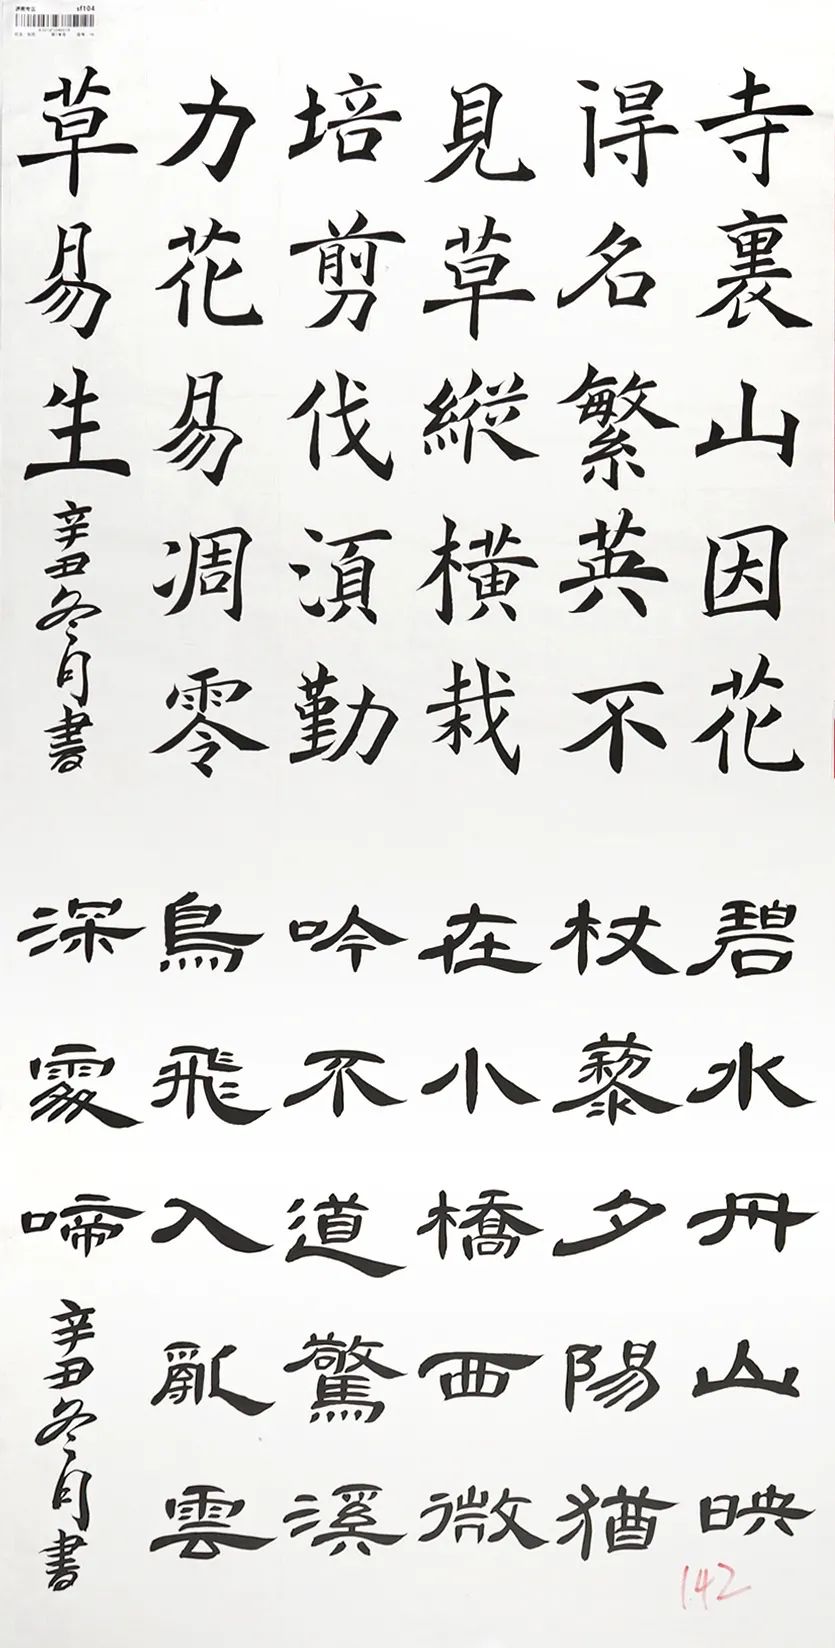 寺裏山因花
得名繁英不
見草縱橫栽
培剪伐須勤
力花易凋零
草易生
辛丑冬月書
碧水丹山映
杖藜夕陽猶
在小橋西微
吟不道驚溪
鳥飛入亂雲
深處啼
辛丑冬月書
142
sf104